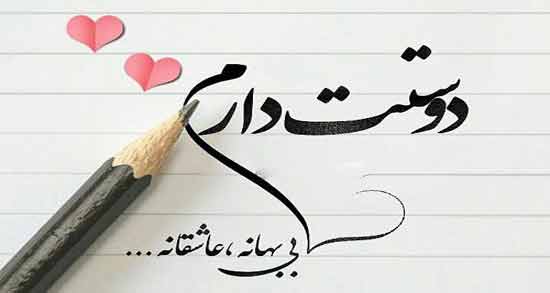 دوستت دارم
بی بهانه، عاشقانه ...